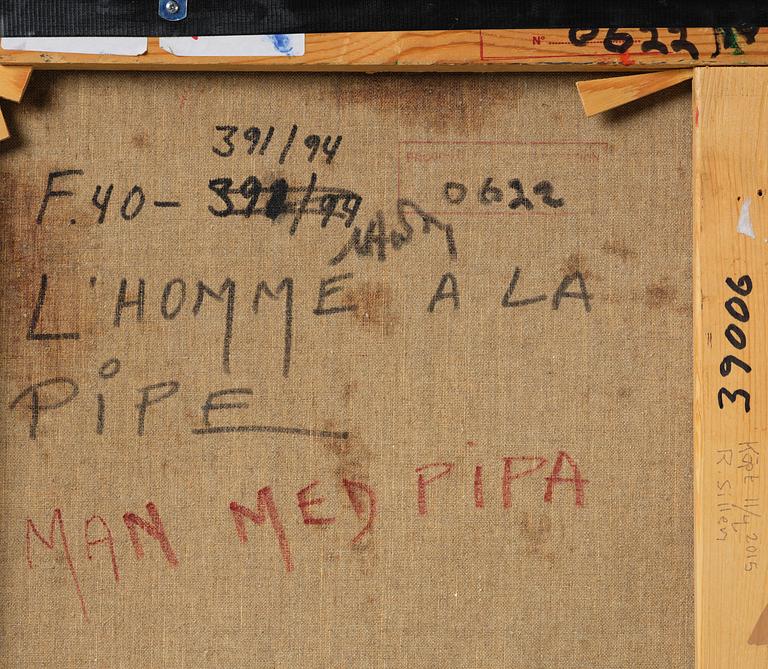 N° 0622
391/94
F.40- 391/94
0622
L'HOMME A LA
PIPE
MAN MED PIPA
39006
Köpt 11/4 2015
R. Sillén